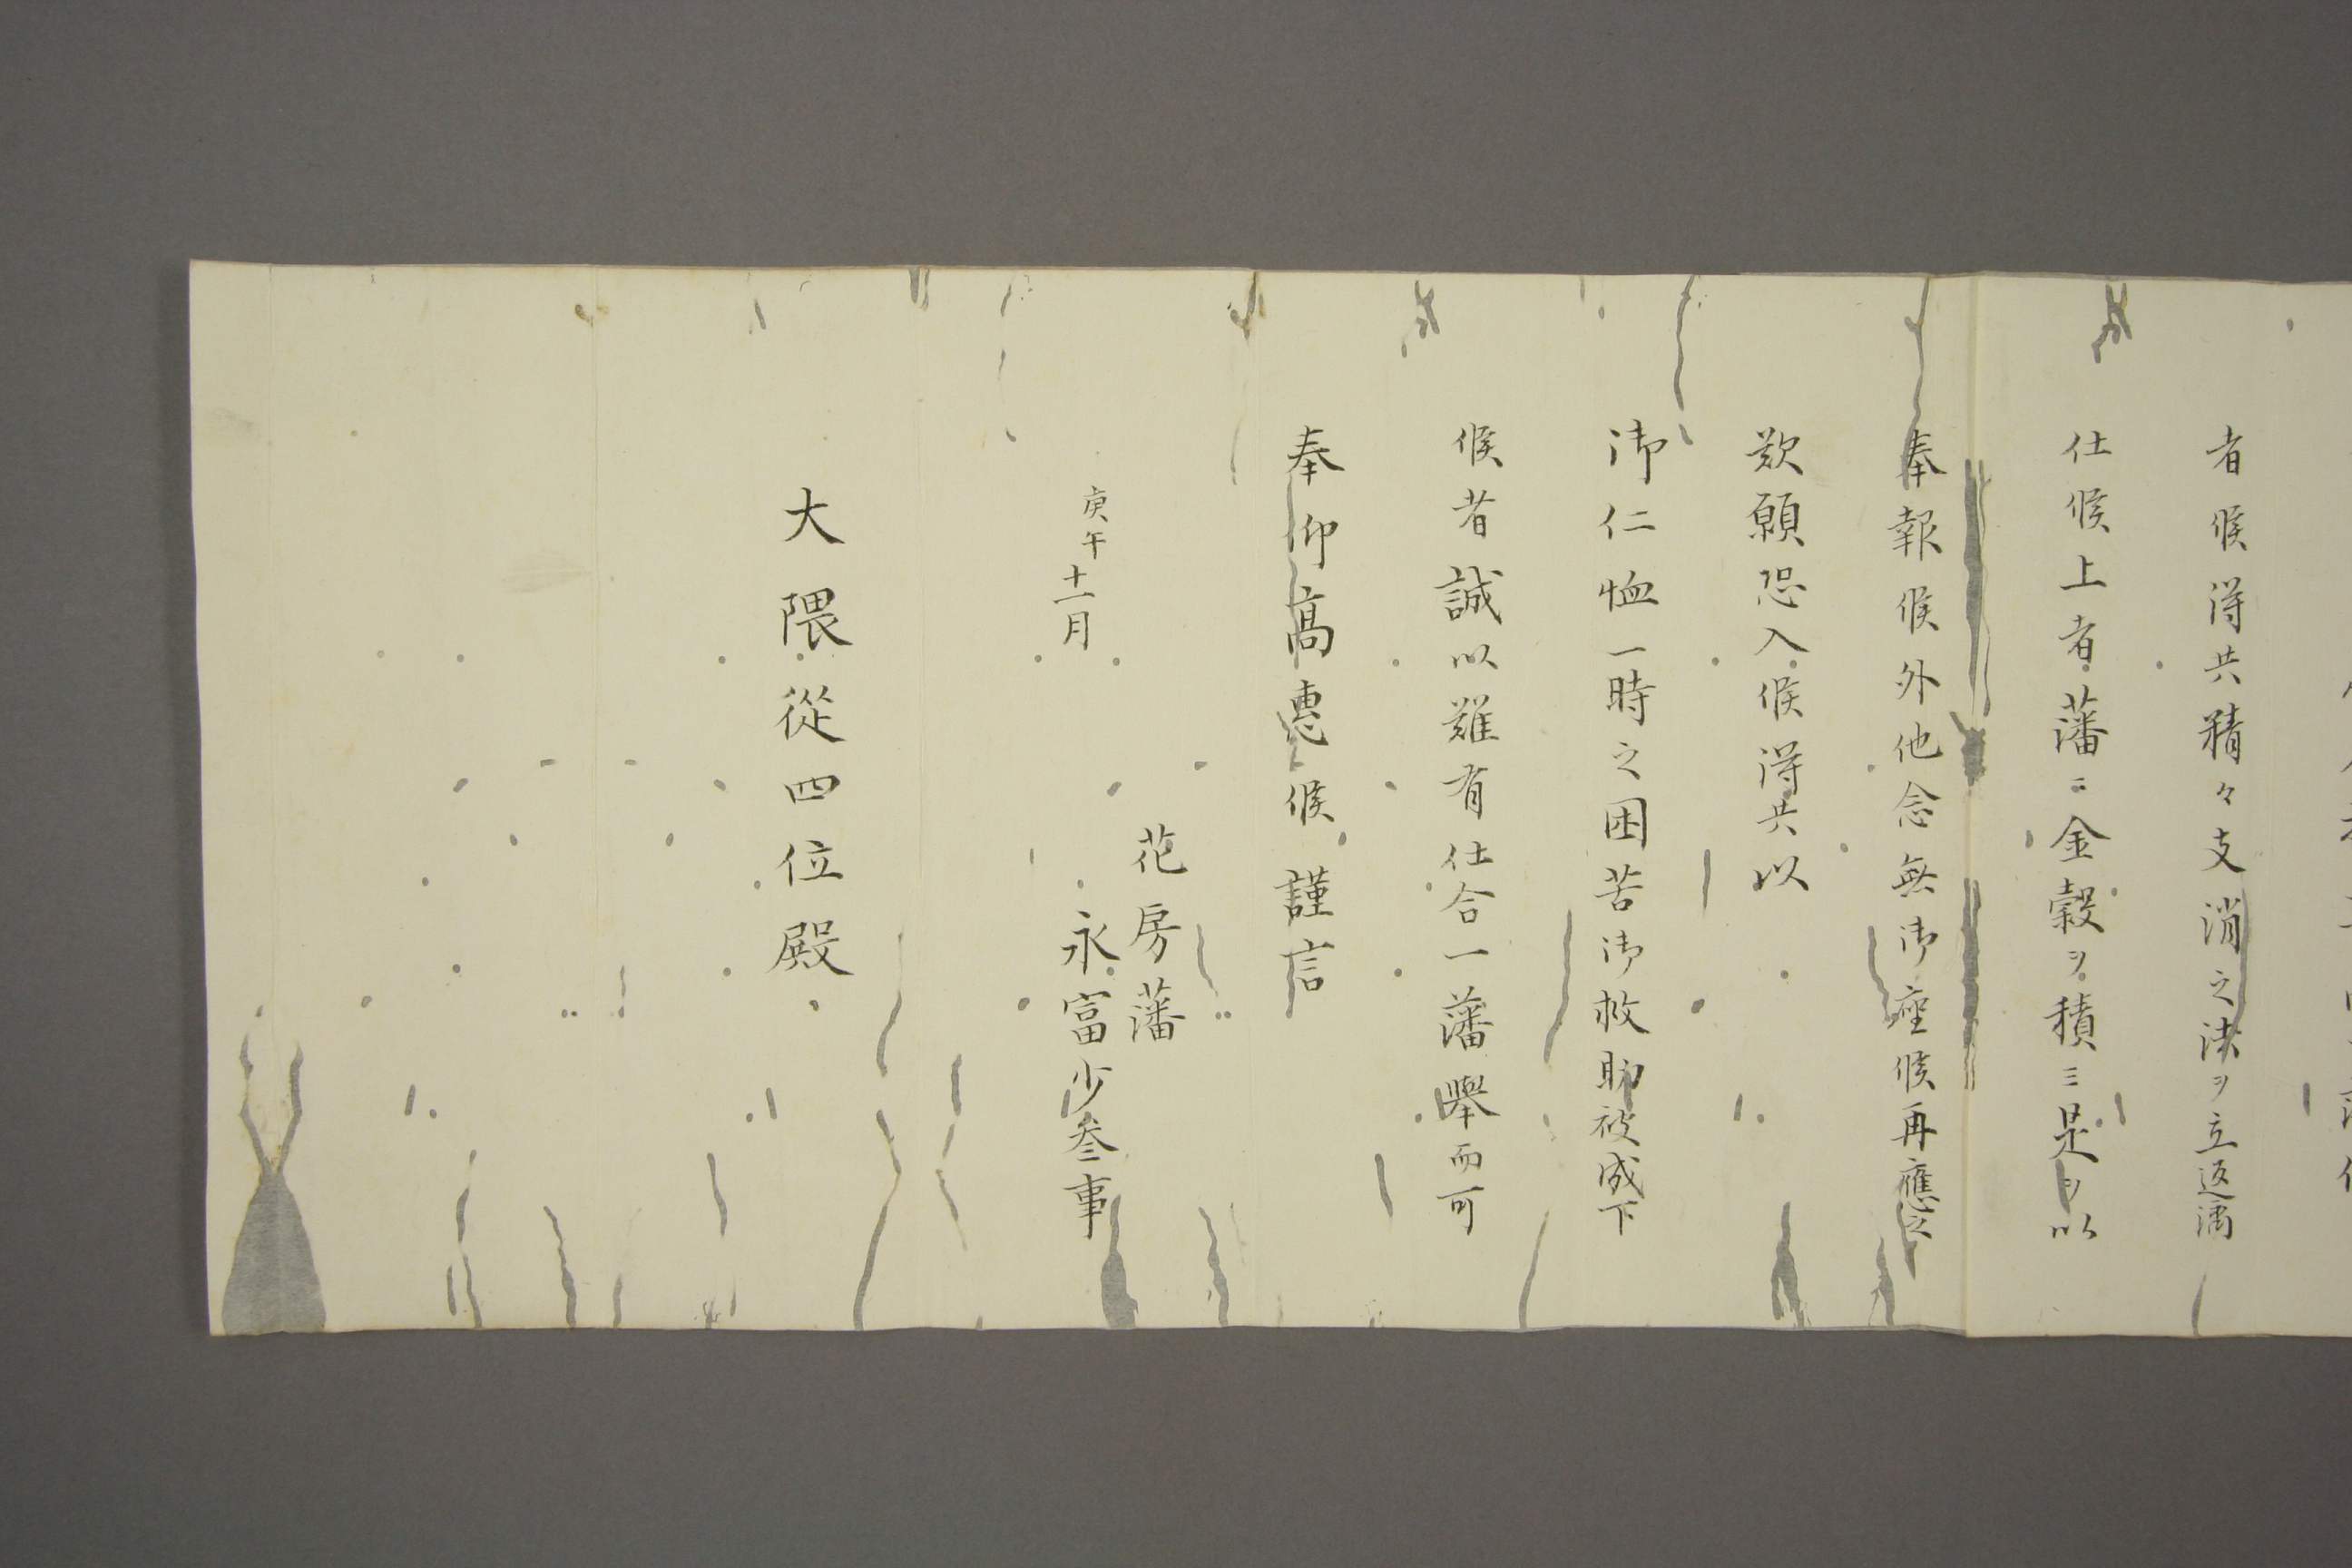 者候得共精々支消之法ヲ立返済
仕候上者藩ニ金穀ヲ積ミ是ヲ以
奉報候外他念無御座候再應之
歎願恐入候得共以
御仁恤一時之困苦御救助被成下
候者誠以難有仕合一藩舉而可
奉仰高惠候謹言
庚午十一月
花房藩
永富少叅事
大隈從四位殿